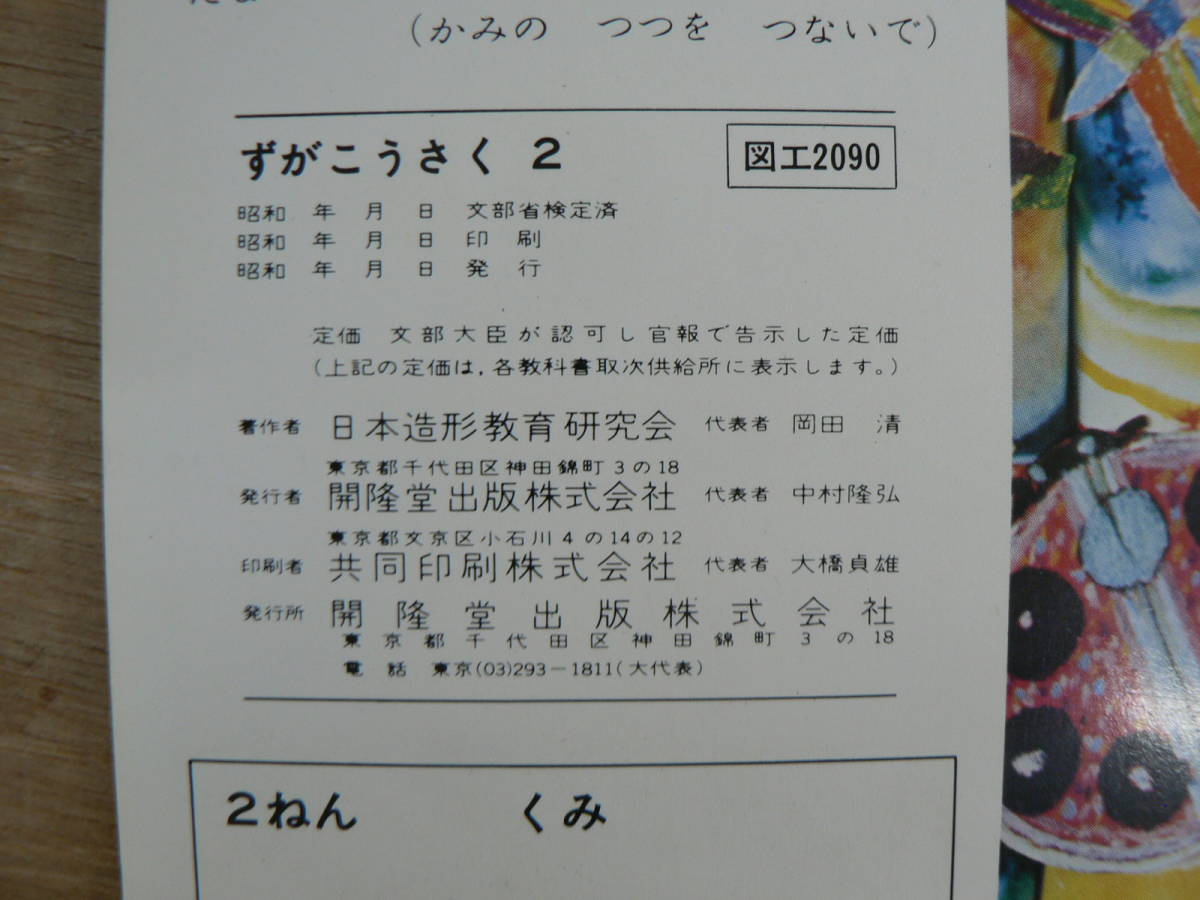 (かみの つつを つないで)
ずがこうさく 2
図工2090
昭和 年 月 日 文部省検定済
昭和 年 月 日 印 刷
昭和 年 月 日 発 行
定価 文部大臣が認可し官報で告示した定価
(上記の定価は,各教科書取次供給所に表示します。)
著作者 日本造形教育研究会 代表者 岡田 清
東京都千代田区神田錦町3の18
発行者 開隆堂出版株式会社 代表者 中村隆弘
東京都文京区小石川4の14の12
印刷者 共同印刷株式会社 代表者 大橋貞雄
発行所 開隆堂出版株式会社
東京都千代田区神田錦町3の18
電話 東京(03)293-1811(大代表)
2ねん くみ